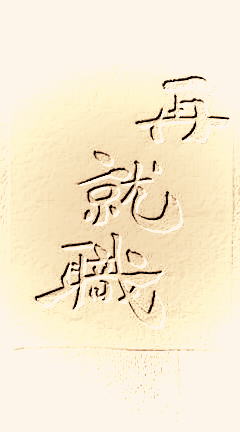 再
就
職